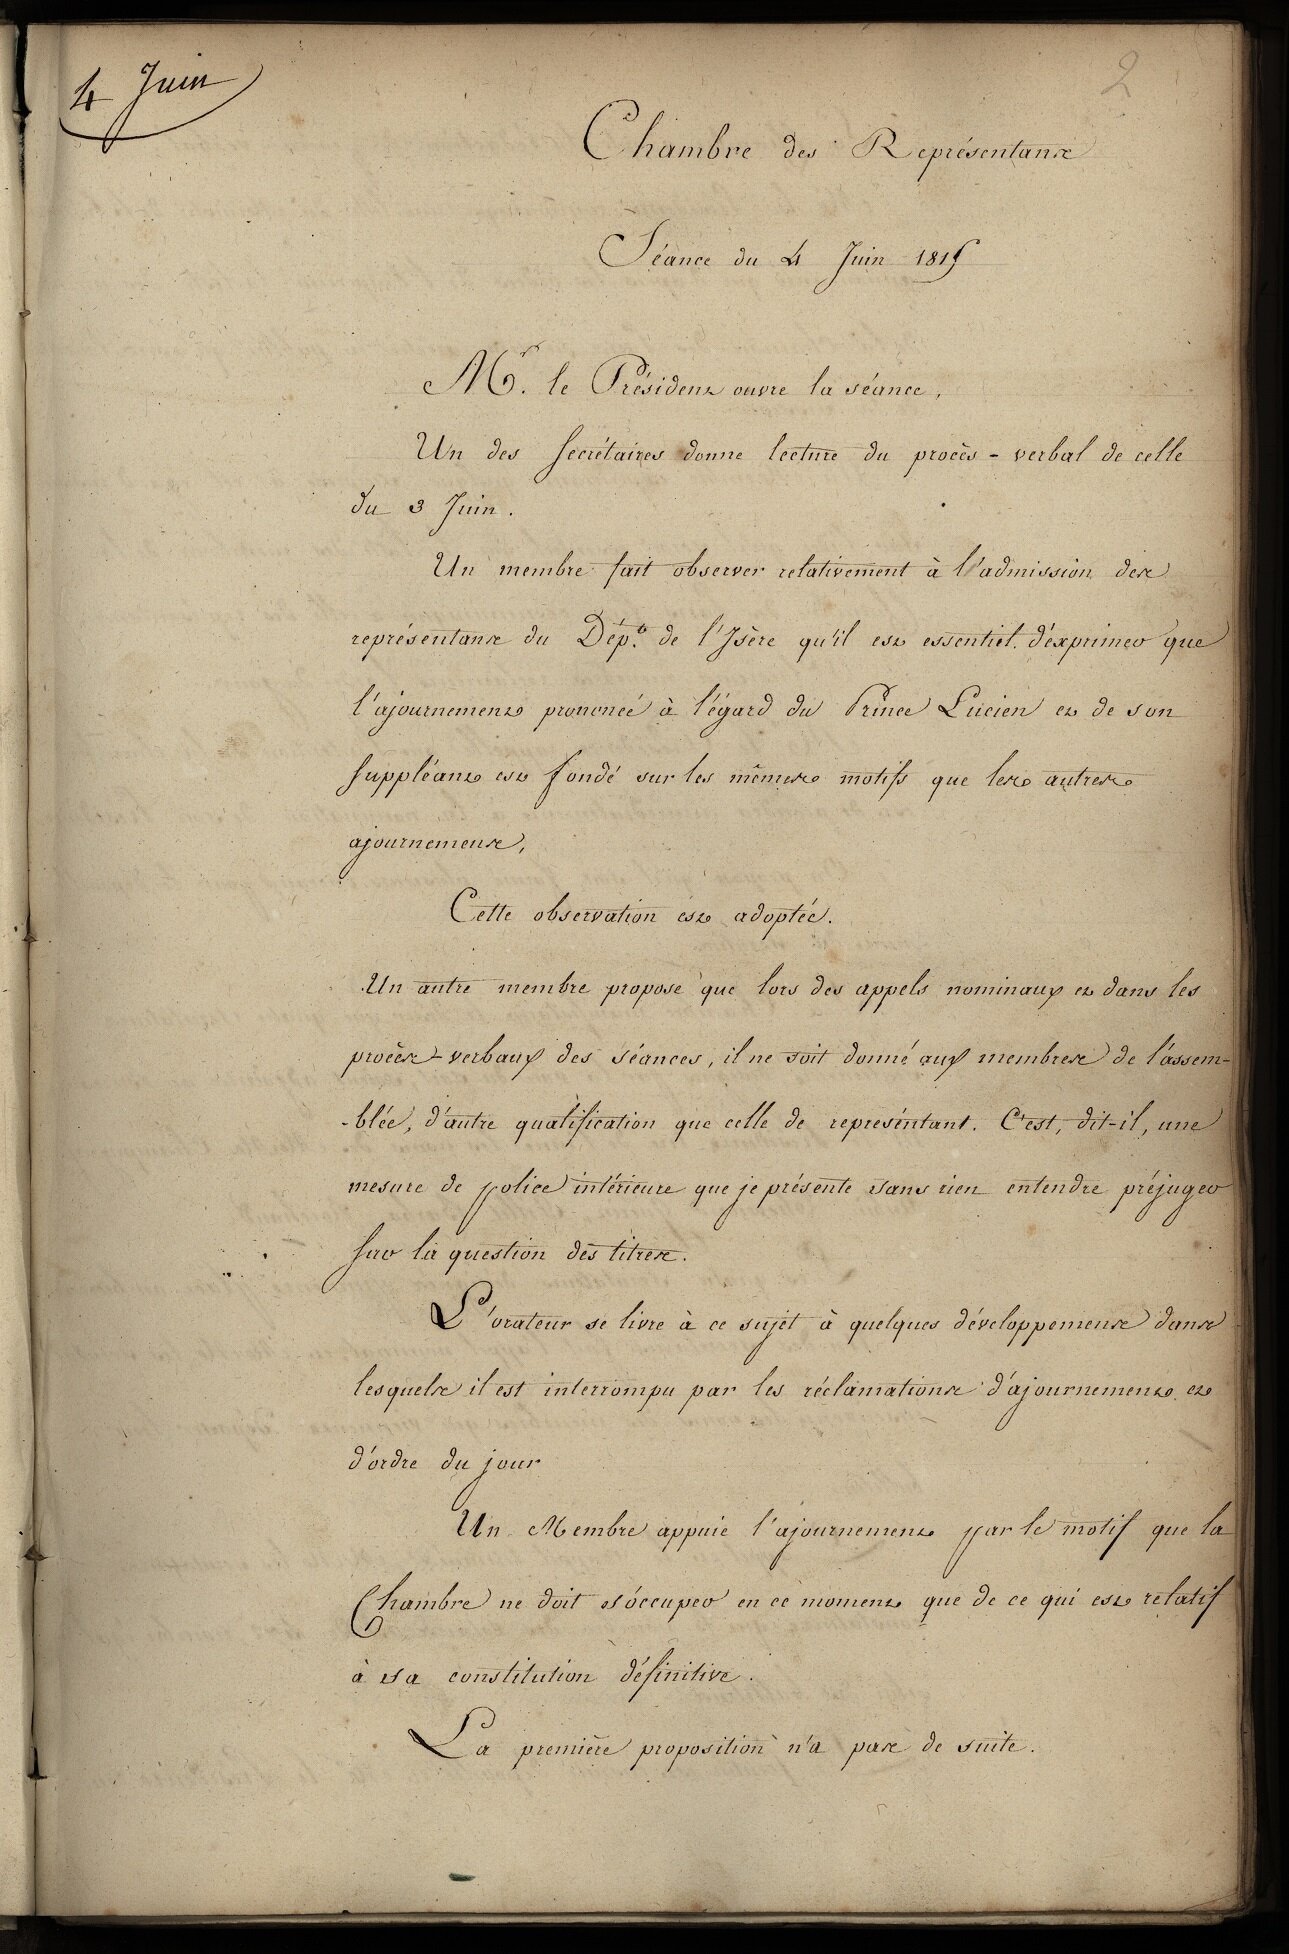 4 Juin
2
Chambre des Représentans
Séance du 4 Juin 1815
Mr. le Président ouvre la séance,
Un des Secrétaires donne lecture du procès-verbal de celle
du 3 Juin.
Un membre fait observer relativement à l'admission des
représentans du Dépt. de l'Isère qu'il est essentiel d'exprimer que
l'ajournement prononcé à l'égard du Prince Lucien et de son
Suppléant est fondé sur les mêmes motifs que les autres
ajournemens,
Cette observation est adoptée.
Un autre membre propose que lors des appels nominaux et dans les
procès-verbaux des séances, il ne soit donné aux membres de l'assem-
-blée, d'autre qualification que celle de représentant. C'est, dit-il, une
mesure de police intérieure que je présente sans rien entendre préjuger
sur la question des titres.
L'orateur se livre à ce sujet à quelques développemens dans
lesquels il est interrompu par les réclamations d'ajournement et
d'ordre du jour
Un Membre appuie l'ajournement par le motif que la
Chambre ne doit s'occuper en ce moment que de ce qui est relatif
à sa constitution définitive.
La première proposition n'a pas de suite.